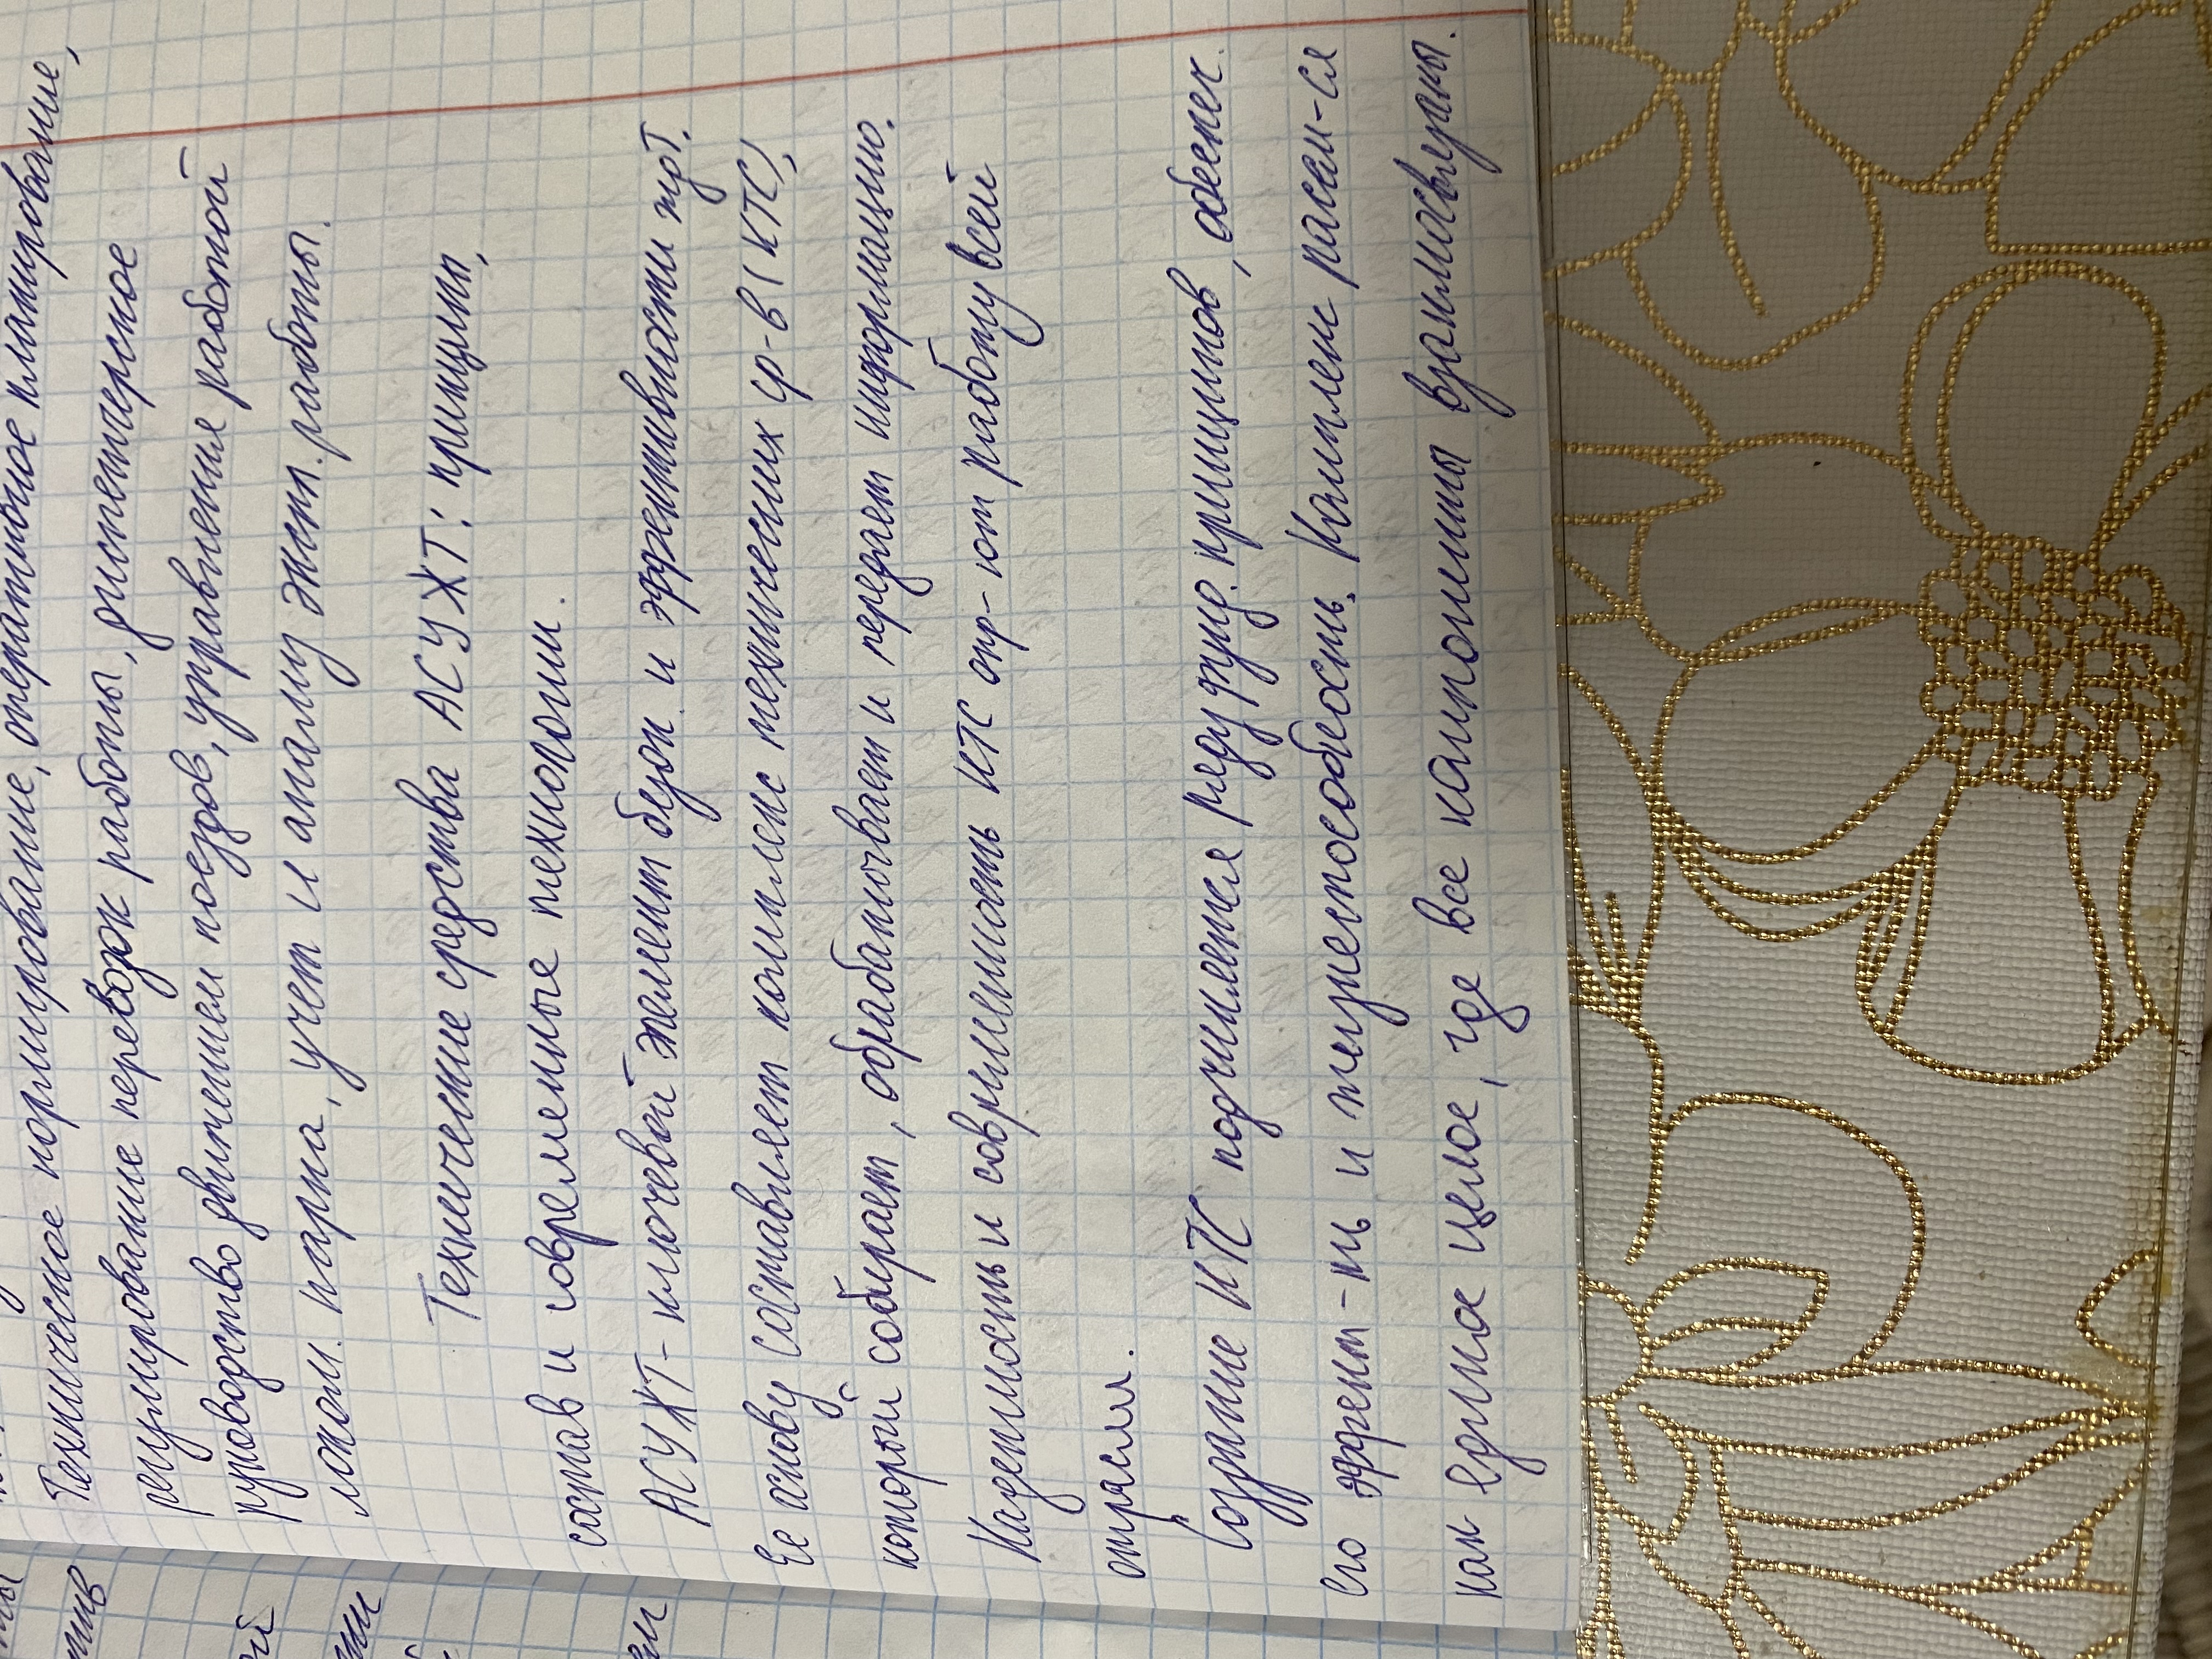 Техническое нормирование, оперативное планирование,
регулирование перевозок работы, диспетчерское
руководство движением поездов, управление работой
локом. парка, учет и анализ экспл. работы.
Технические средства АСУЖТ: принципы,
состав и современные технологии.
АСУЖТ - ключевой элемент безоп. и эффективности жрТ.
Ее основу составляет комплекс технических ср-в (КТС),
который собирает, обрабатывает и передает информацию.
Надежность и современность КТС опр-ют работу всей
отрасли.
Создание КТС подчиняется ряду фунд. принципов, обеспеч.
его эффект-ть и жизнеспособность. Комплекс рассм-ся
как единое целое, где все компоненты взаимосвязаны.
тив
ей